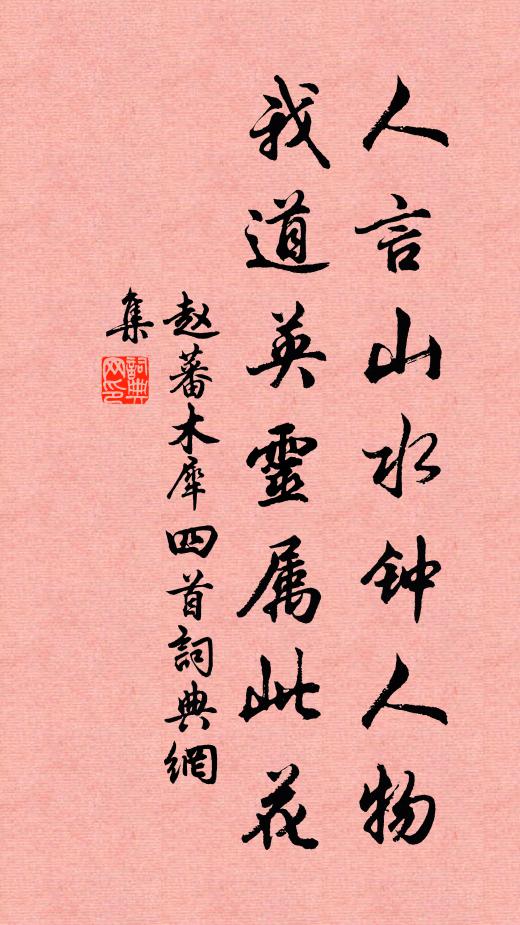 人言山水钟人物
我道英靈属此花
赵蕃木犀四首詞典網
集
詞典
网印